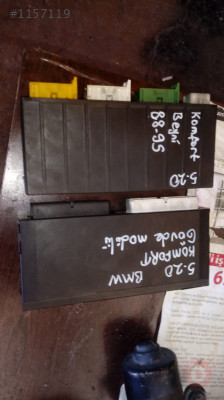 #1157119
Komfort
Beyni
88-95
5.20
5.20 BMW
KOMFORT
Gövde modülü